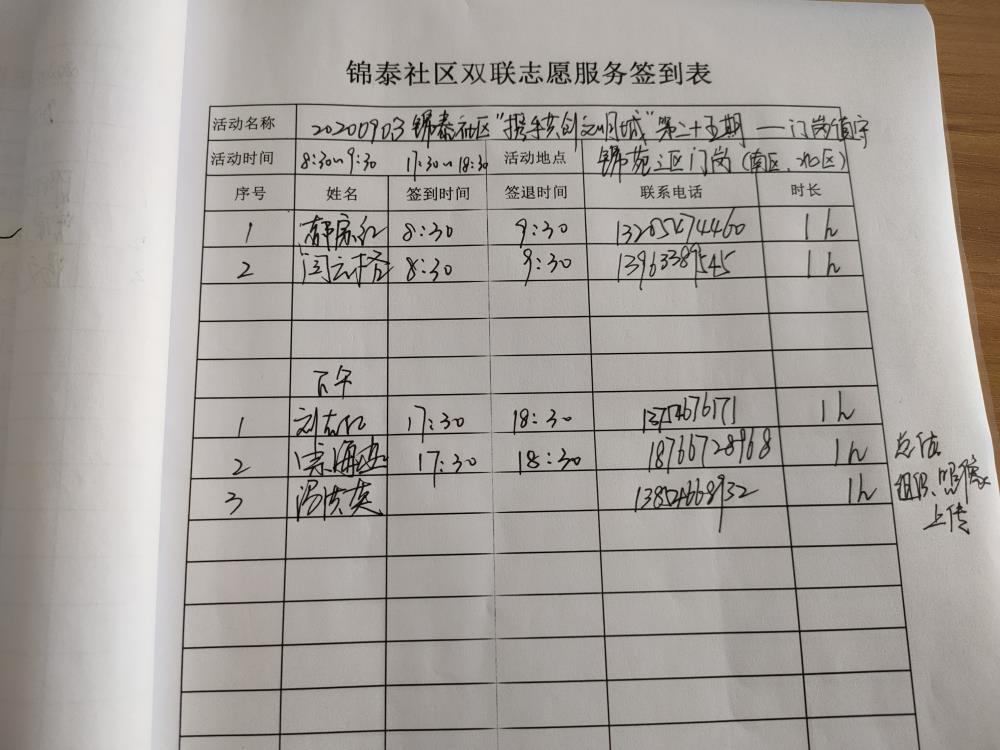 锦泰社区双联志愿服务签到表
活动名称 20200903 锦泰社区"携手共创文明城"第二十五期 — 门岗值守
活动时间 8:30~9:30 17:30~18:30 活动地点 锦苑三区门岗(南区、北区)
序号 姓名 签到时间 签退时间 联系电话 时长
1 8:30 9:30 13285474460 1h
2 闫云 8:30 9:30 13963389545 1h
下午
1 刘志红 17:30 18:30 1h
2 宗海 17:30 18:30 18766728968 1h
3 冯洪英 1h
总结
组织、照像
上传